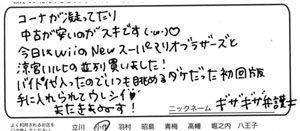 コーナが凝ってたり
中古が安いのがスキです(・ω・)♡
今日はwiiのNewスーパーマリオブラザーズと
涼宮ハルヒの並列買いました!
バイト代入ったのでいつも眺めるダケだった初回版
手に入れられてウレシイ♡
またきまぁーす!
ニックネーム ギザギザ弁護士
よく利用されるお店
立川 小作 羽村 昭島 青梅 高幡 堀之内 八王子